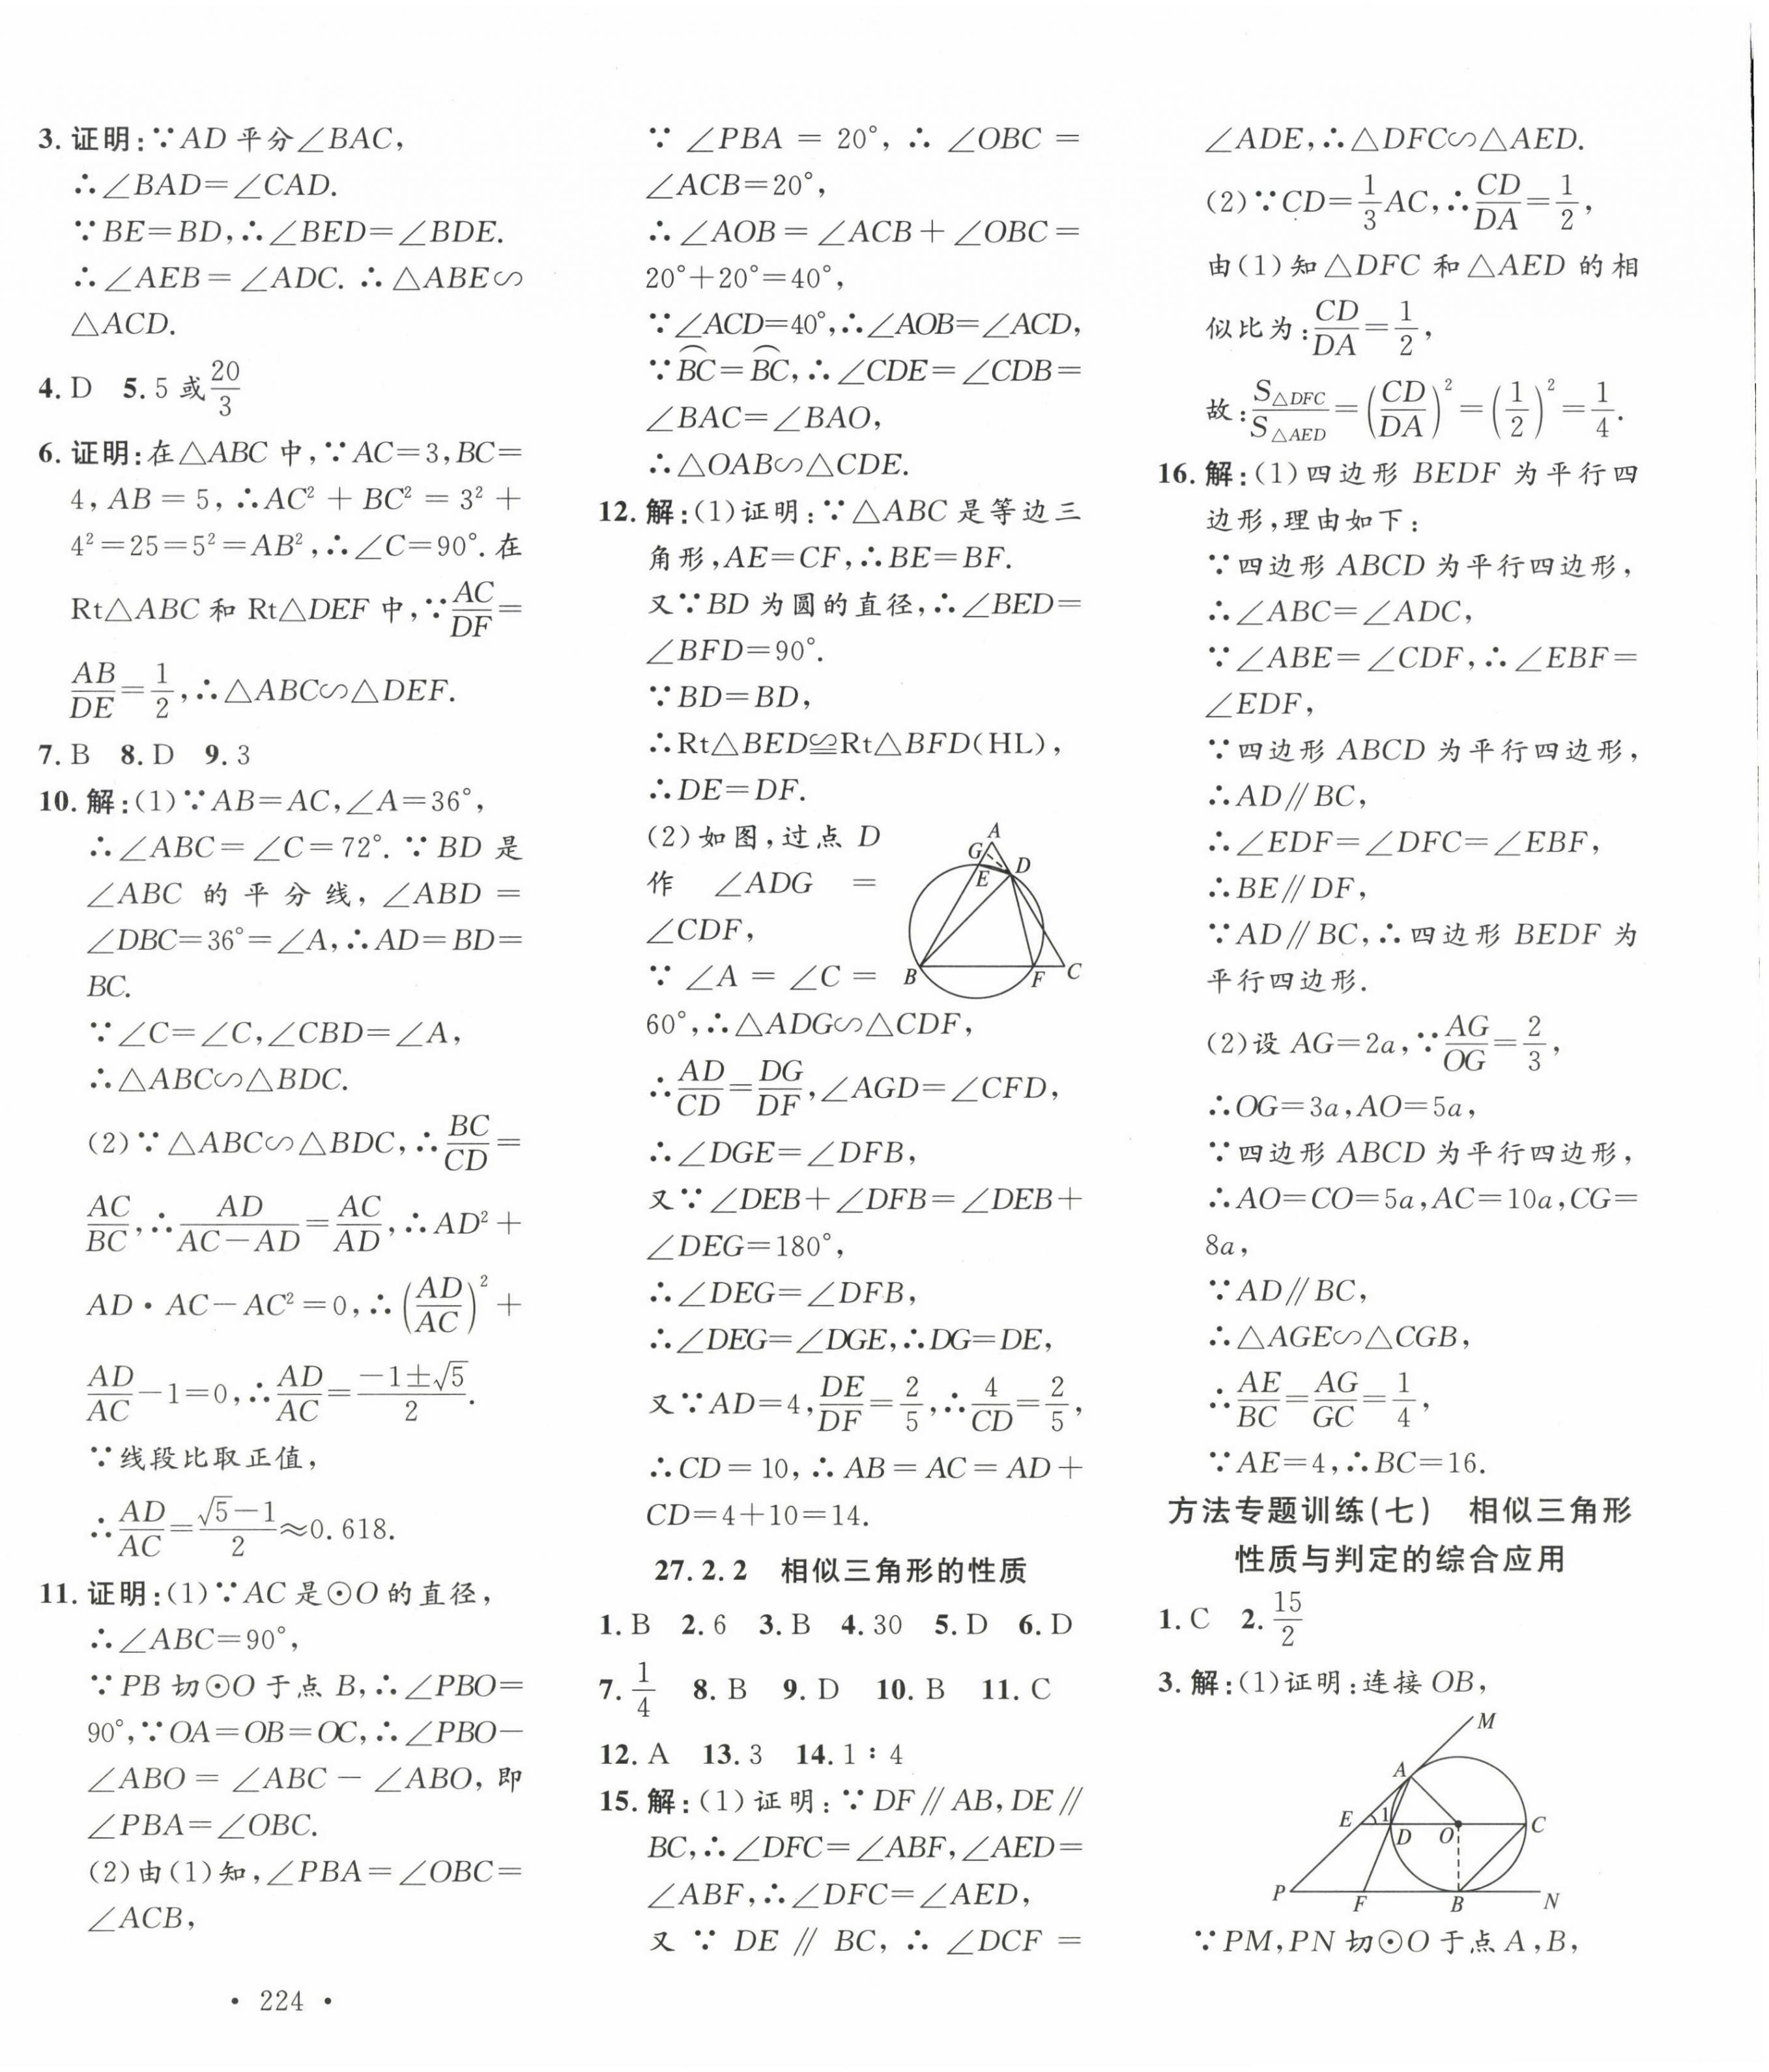 3. 证明:∵AD 平分∠BAC,
∴∠BAD=∠CAD.
∵BE=BD,∴∠BED=∠BDE.
∴∠AEB=∠ADC. ∴△ABE∽
△ACD.
4. D 5. 5 或 20/3
6. 证明:在△ABC 中,∵AC=3,BC=
4,AB=5,∴AC²+BC²=3²+
4²=25=5²=AB²,∴∠C=90°. 在
Rt△ABC 和 Rt△DEF 中,∵AC/DF=
AB/DE=1/2,∴△ABC∽△DEF.
7. B 8. D 9. 3
10. 解:(1)∵AB=AC,∠A=36°,
∴∠ABC=∠C=72°. ∵BD 是
∠ABC 的平分线,∠ABD=
∠DBC=36°=∠A,∴AD=BD=
BC.
∵∠C=∠C,∠CBD=∠A,
∴△ABC∽△BDC.
(2)∵△ABC∽△BDC,∴BC/CD=
AC/BC,∴AD/(AC-AD)=AC/AD,∴AD²+
AD·AC-AC²=0,∴(AD/AC)²+
AD/AC-1=0,∴AD/AC=(-1±√5)/2.
∵线段比取正值,
∴AD/AC=(√5-1)/2≈0.618.
11. 证明:(1)∵AC 是⊙O 的直径,
∴∠ABC=90°,
∵PB 切⊙O 于点 B,∴∠PBO=
90°,∵OA=OB=OC,∴∠PBO-
∠ABO=∠ABC-∠ABO,即
∠PBA=∠OBC.
(2)由(1)知,∠PBA=∠OBC=
∠ACB,
· 224 ·
∵∠PBA=20°,∴∠OBC=
∠ACB=20°,
∴∠AOB=∠ACB+∠OBC=
20°+20°=40°,
∵∠ACD=40°,∴∠AOB=∠ACD,
∵⌒BC=⌒BC,∴∠CDE=∠CDB=
∠BAC=∠BAO,
∴△OAB∽△CDE.
12. 解:(1)证明:∵△ABC 是等边三
角形,AE=CF,∴BE=BF.
又∵BD 为圆的直径,∴∠BED=
∠BFD=90°.
∵BD=BD,
∴Rt△BED≌Rt△BFD(HL),
∴DE=DF.
(2)如图,过点 D
作 ∠ADG =
∠CDF,
∵∠A=∠C=
A
G
E
D
B
F
C
60°,∴△ADG∽△CDF,
∴AD/CD=DG/DF,∠AGD=∠CFD,
∴∠DGE=∠DFB,
又∵∠DEB+∠DFB=∠DEB+
∠DEG=180°,
∴∠DEG=∠DFB,
∴∠DEG=∠DGE,∴DG=DE,
又∵AD=4,DE/DF=2/5,∴4/CD=2/5,
∴CD=10,∴AB=AC=AD+
CD=4+10=14.
27.2.2 相似三角形的性质
1. B 2. 6 3. B 4. 30 5. D 6. D
7. 1/4 8. B 9. D 10. B 11. C
12. A 13. 3 14. 1∶4
15. 解:(1)证明:∵DF∥AB,DE∥
BC,∴∠DFC=∠ABF,∠AED=
∠ABF,∴∠DFC=∠AED,
又∵DE∥BC,∴∠DCF=
∠ADE,∴△DFC∽△AED.
(2)∵CD=1/3AC,∴CD/DA=1/2,
由(1)知△DFC 和△AED 的相
似比为:CD/DA=1/2,
故:S△DFC/S△AED=(CD/DA)²=(1/2)²=1/4.
16. 解:(1)四边形 BEDF 为平行四
边形,理由如下:
∵四边形 ABCD 为平行四边形,
∴∠ABC=∠ADC,
∵∠ABE=∠CDF,∴∠EBF=
∠EDF,
∵四边形 ABCD 为平行四边形,
∴AD∥BC,
∴∠EDF=∠DFC=∠EBF,
∴BE∥DF,
∵AD∥BC,∴四边形 BEDF 为
平行四边形.
(2)设 AG=2a,∵AG/OG=2/3,
∴OG=3a,AO=5a,
∵四边形 ABCD 为平行四边形,
∴AO=CO=5a,AC=10a,CG=
8a,
∵AD∥BC,
∴△AGE∽△CGB,
∴AE/BC=AG/GC=1/4,
∵AE=4,∴BC=16.
方法专题训练(七) 相似三角形
性质与判定的综合应用
1. C 2. 15/2
3. 解:(1)证明:连接 OB,
M
A
E
1
D
O
C
P
F
B
N
∵PM,PN 切⊙O 于点 A,B,